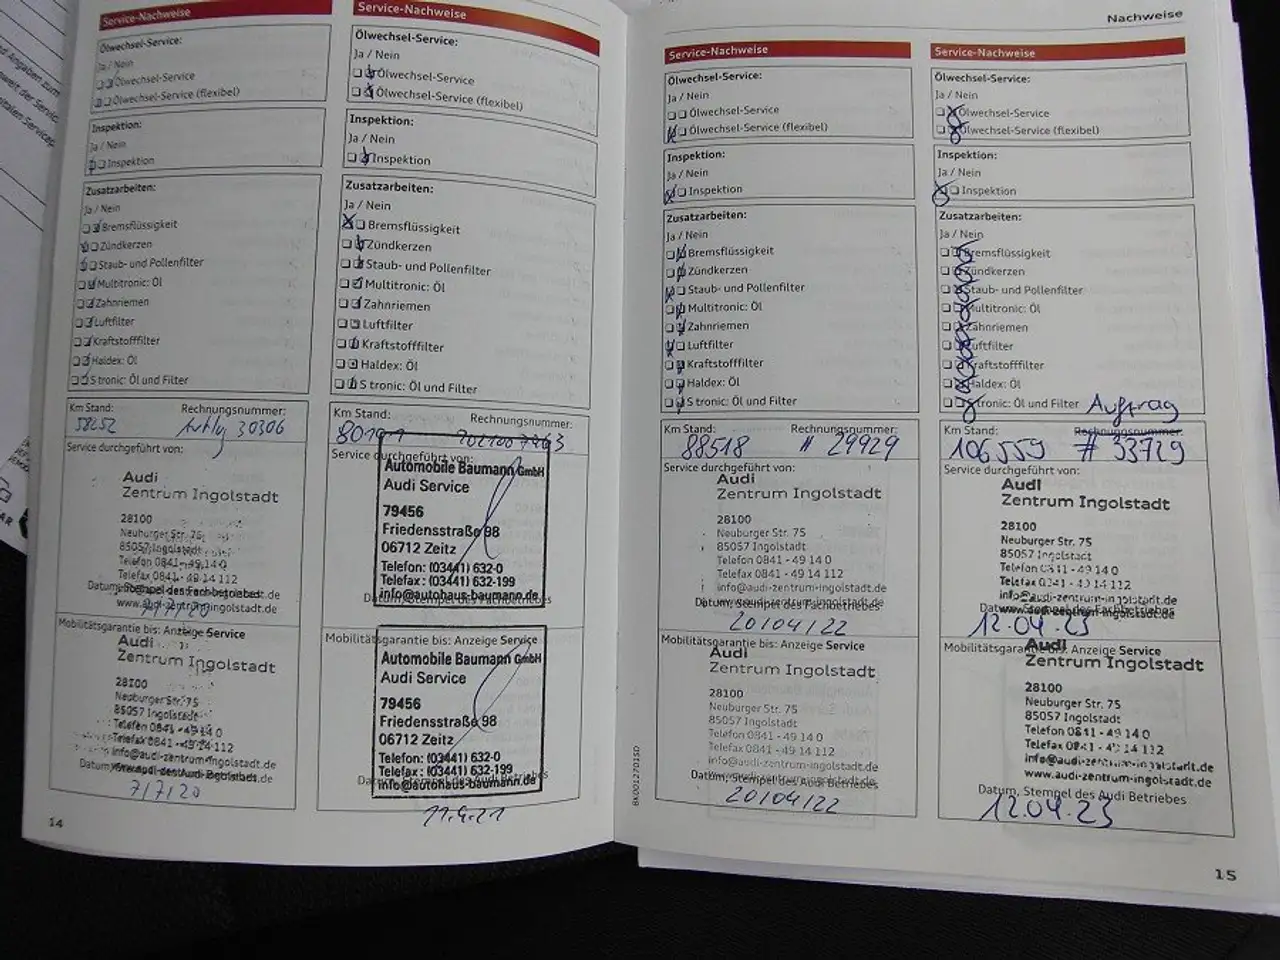 Nachweise
Service-Nachweise
Ölwechsel-Service:
Ja / Nein
Ölwechsel-Service
Ölwechsel-Service (flexibel)
Inspektion:
Ja / Nein
Inspektion
Zusatzarbeiten:
Ja / Nein
Bremsflüssigkeit
Zündkerzen
Staub- und Pollenfilter
Multitronic: Öl
Zahnriemen
Luftfilter
Kraftstofffilter
Haldex: Öl
S tronic: Öl und Filter
Km Stand: Rechnungsnummer:
58252 30306
Service durchgeführt von:
Audi
Zentrum Ingolstadt
28100
Neuburger Str. 75
85057 Ingolstadt
Telefon 0841 - 49 14 0
Telefax 0841 - 49 14 112
Datum, Stempel des Fachbetriebes
www.audi-zentrum-ingolstadt.de
7/7/20
Mobilitätsgarantie bis: Anzeige Service
Audi
Zentrum Ingolstadt
28100
Neuburger Str. 75
85057 Ingolstadt
Telefon 0841 - 49 14 0
Telefax 0841 - 49 14 112
info@audi-zentrum-ingolstadt.de
7/7/20
14
Service-Nachweise
Ölwechsel-Service:
Ja / Nein
Ölwechsel-Service
Ölwechsel-Service (flexibel)
Inspektion:
Ja / Nein
Inspektion
Zusatzarbeiten:
Ja / Nein
Bremsflüssigkeit
Zündkerzen
Staub- und Pollenfilter
Multitronic: Öl
Zahnriemen
Luftfilter
Kraftstofffilter
Haldex: Öl
S tronic: Öl und Filter
Km Stand: Rechnungsnummer:
Service durchgeführt von:
Automobile Baumann GmbH
Audi Service
79456
Friedensstraße 98
06712 Zeitz
Telefon: (03441) 632-0
Telefax: (03441) 632-199
info@autohaus-baumann.de
Datum, Stempel des Fachbetriebes
Mobilitätsgarantie bis: Anzeige Service
Automobile Baumann GmbH
Audi Service
79456
Friedensstraße 98
06712 Zeitz
Telefon: (03441) 632-0
Telefax: (03441) 632-199
info@autohaus-baumann.de
Datum, Stempel des Audi Betriebes
Service-Nachweise
Ölwechsel-Service:
Ja / Nein
Ölwechsel-Service
Ölwechsel-Service (flexibel)
Inspektion:
Ja / Nein
Inspektion
Zusatzarbeiten:
Ja / Nein
Bremsflüssigkeit
Zündkerzen
Staub- und Pollenfilter
Multitronic: Öl
Zahnriemen
Luftfilter
Kraftstofffilter
Haldex: Öl
S tronic: Öl und Filter
Km Stand: Rechnungsnummer:
88518 # 29929
Service durchgeführt von:
Audi
Zentrum Ingolstadt
28100
Neuburger Str. 75
85057 Ingolstadt
Telefon 0841 - 49 14 0
Telefax 0841 - 49 14 112
info@audi-zentrum-ingolstadt.de
Datum, Stempel des Fachbetriebes
20/04/22
Mobilitätsgarantie bis: Anzeige Service
Audi
Zentrum Ingolstadt
28100
Neuburger Str. 75
85057 Ingolstadt
Telefon 0841 - 49 14 0
Telefax 0841 - 49 14 112
info@audi-zentrum-ingolstadt.de
Datum, Stempel des Audi Betriebes
20/04/22
Service-Nachweise
Ölwechsel-Service:
Ja / Nein
Ölwechsel-Service
Ölwechsel-Service (flexibel)
Inspektion:
Ja / Nein
Inspektion
Zusatzarbeiten:
Ja / Nein
Bremsflüssigkeit
Zündkerzen
Staub- und Pollenfilter
Multitronic: Öl
Zahnriemen
Luftfilter
Kraftstofffilter
Haldex: Öl
S tronic: Öl und Filter
Auftrag
Km Stand: Rechnungsnummer:
106559 # 33729
Service durchgeführt von:
Audi
Zentrum Ingolstadt
28100
Neuburger Str. 75
85057 Ingolstadt
Telefon 0841 - 49 14 0
Telefax 0841 - 49 14 112
info@audi-zentrum-ingolstadt.de
Datum, Stempel des Fachbetriebes
www.audi-zentrum-ingolstadt.de
12.04.23
Mobilitätsgarantie bis: Anzeige Service
Audi
Zentrum Ingolstadt
28100
Neuburger Str. 75
85057 Ingolstadt
Telefon 0841 - 49 14 0
Telefax 0841 - 49 14 112
info@audi-zentrum-ingolstadt.de
www.audi-zentrum-ingolstadt.de
Datum, Stempel des Audi Betriebes
12.04.23
15